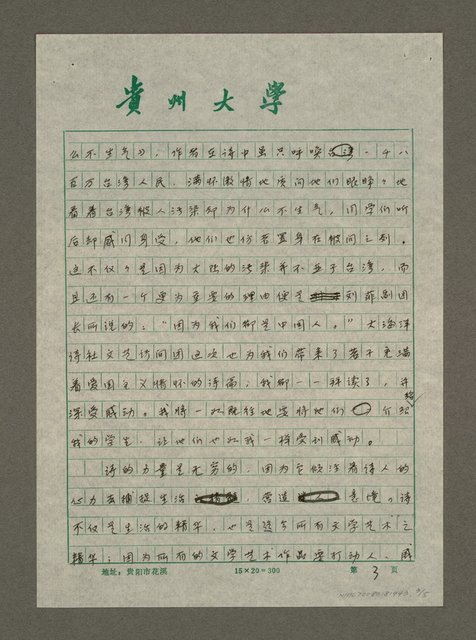 貴州大學
么不生气》，作者在诗中虽只呼唤台湾一千八
百万台湾人民，满怀激情地质问他们眼睁之地
看着台湾被人污染却为什么不生气，同学们听
后却感同身受，他们也仿若置身在被问之列。
这不仅之是因为大气的污染并不止于台湾，而
且还有一个更为重要的理由便是刘菲副团
长所说的："因为我们都是中国人。"大海洋
诗社文艺访问团这次也为我们带来了若干充满
着爱国主义情怀的诗篇，我都一一拜读了，并
深受感动。我将一如既往地要将他们介绍给
我的学生，让他们也如我一样受到感动。
诗的力量是无穷的，因为它倾注着诗人的
心力去捕捉生活，营造意境。诗
不仅是生活的精华，也是迄今所有文学艺术之
精华；因为所有的文学艺术作品要打动人、感
地址：贵阳市花溪 15×20=300 第 3 页